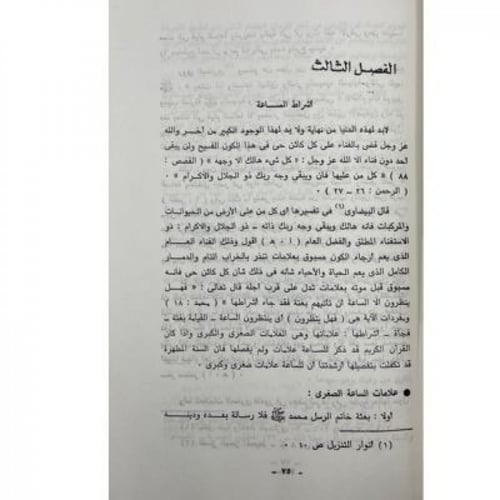 الفصل الثالث
أشراط الساعة
لابد لهذه الدنيا من نهاية ولابد لهذا الوجود الكبير من آخر والله
عز وجل قضى بالفناء على كل كائن حى فى هذا الكون الفسيح ولن يبقى
أحد دون فناء الا الله عز وجل : « كل شىء هالك الا وجهه » ( القصص :
٨٨ ) « كل من عليها فان ويبقى وجه ربك ذو الجلال والاكرام »
( الرحمن : ٢٦ – ٢٧ ) ٠
قال البيضاوى(٦) فى تفسيرها أى كل من على الأرض من الحيوانات
والمركبات فانه هالك ويبقى وجه ربك ذاته – ذو الجلال والاكرام : ذو
الاستغناء المطلق والفضل العام ( ا ٠ هـ ) أقول وذلك الفناء العام
الذى يعم أرجاء الكون مسبوق بعلامات تنذر بالخراب التام والدمار
الكامل الذى يعم الحياة والأحياء شأنه فى ذلك شأن كل كائن حى فانه
مسبوق قبل موته بعلامات تدل على قرب أجله قال تعالى : « فهل
ينظرون الا الساعة أن تأتيهم بغتة فقد جاء أشراطها » ( محمد : ١٨ )
ومفردات الآية هى ( فهل ينظرون ) أى ينتظرون الساعة – القيامة بغتة –
فجأة – أشراطها : علاماتها وهى العلامات الصغرى والكبرى واذا كان
القرآن الكريم قد ذكر للساعة علامات ولم يفصلها فان السنة المطهرة
قد تكفلت بتفصيلها أرشدتنا أن للساعة علامات صغرى وكبرى ٠
● علامات الساعة الصغرى :
أولا : بعثة خاتم الرسل محمد ﷺ فلا رسالة بعده ودينه
(١) أنوار التنزيل ص
– ٧٥ –